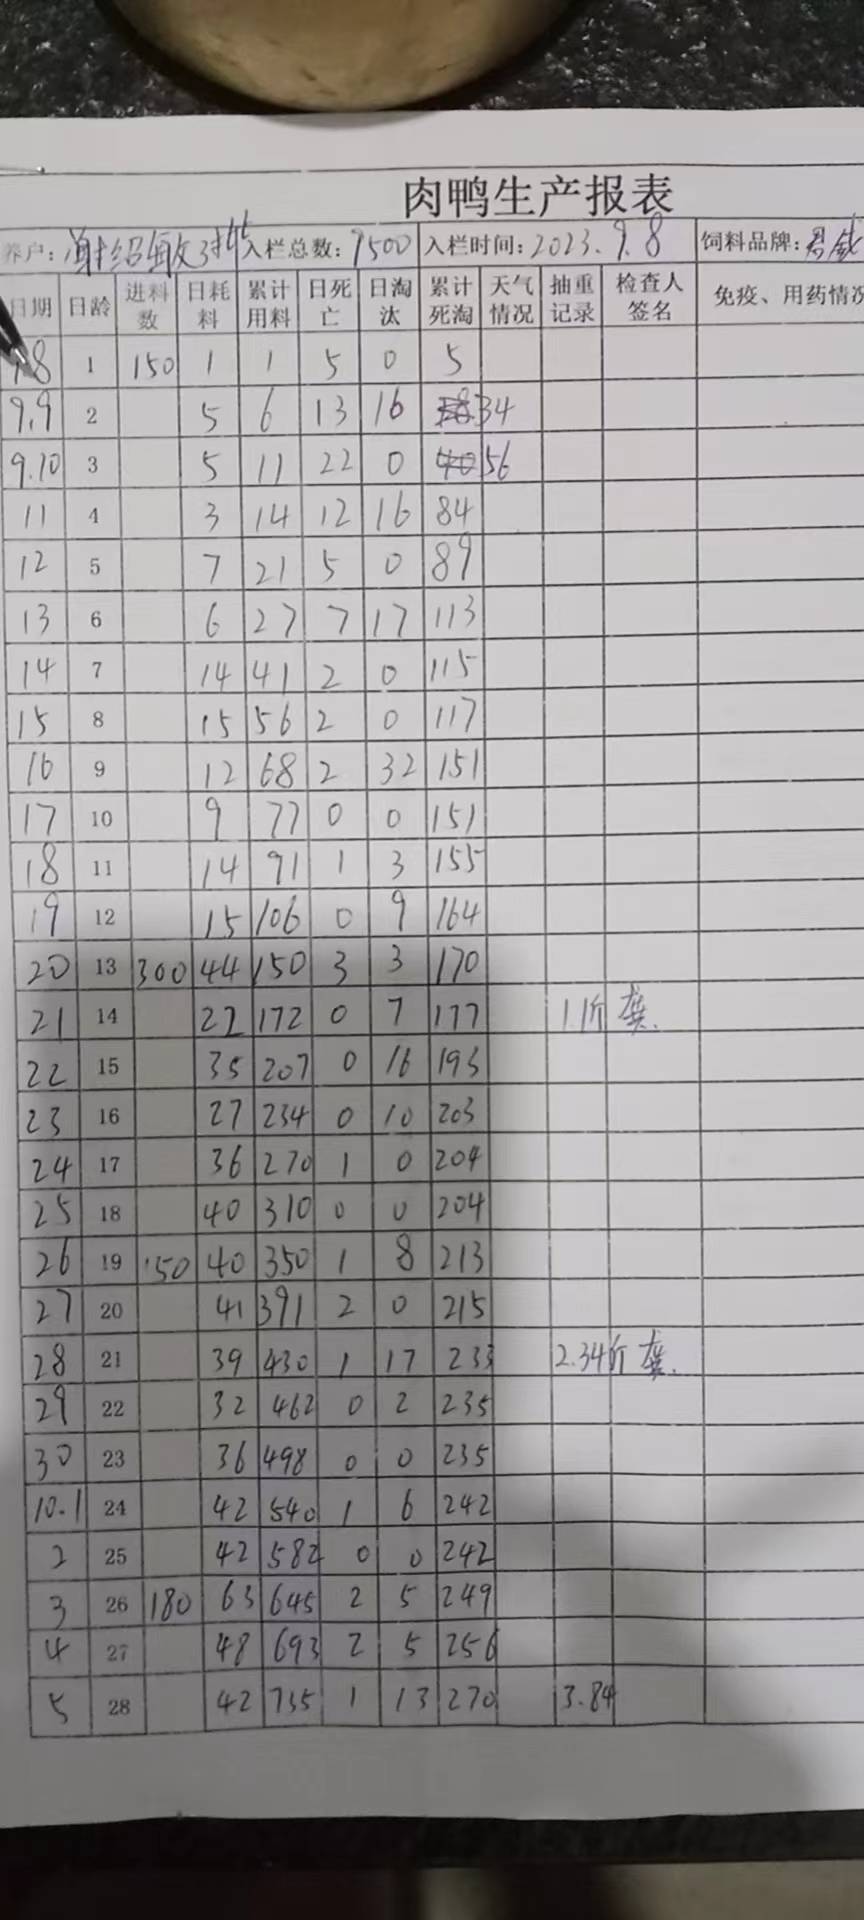 肉鸭生产报表
养户: 入栏总数: 9500 入栏时间: 2023.9.8 饲料品牌:
日期 日龄 进料数 日耗料 累计用料 日死亡 日淘汰 累计死淘 天气情况 抽重记录 检查人签名 免疫、用药情况
9.8 1 150 1 1 5 0 5
9.9 2 5 6 13 16 34
9.10 3 5 11 22 0 56
11 4 3 14 12 16 84
12 5 7 21 5 0 89
13 6 6 27 7 17 113
14 7 14 41 2 0 115
15 8 15 56 2 0 117
16 9 12 68 2 32 151
17 10 9 77 0 0 151
18 11 14 91 1 3 155
19 12 15 106 0 9 164
20 13 300 44 150 3 3 170
21 14 22 172 0 7 177 1.1斤 龚
22 15 35 207 0 16 193
23 16 27 234 0 10 203
24 17 36 270 1 0 204
25 18 40 310 0 0 204
26 19 150 40 350 1 8 213
27 20 41 391 2 0 215
28 21 39 430 1 17 233 2.34斤 龚
29 22 32 462 0 2 235
30 23 36 498 0 0 235
10.1 24 42 540 1 6 242
2 25 42 582 0 0 242
3 26 180 63 645 2 5 249
4 27 48 693 2 5 256
5 28 42 735 1 13 270 3.84